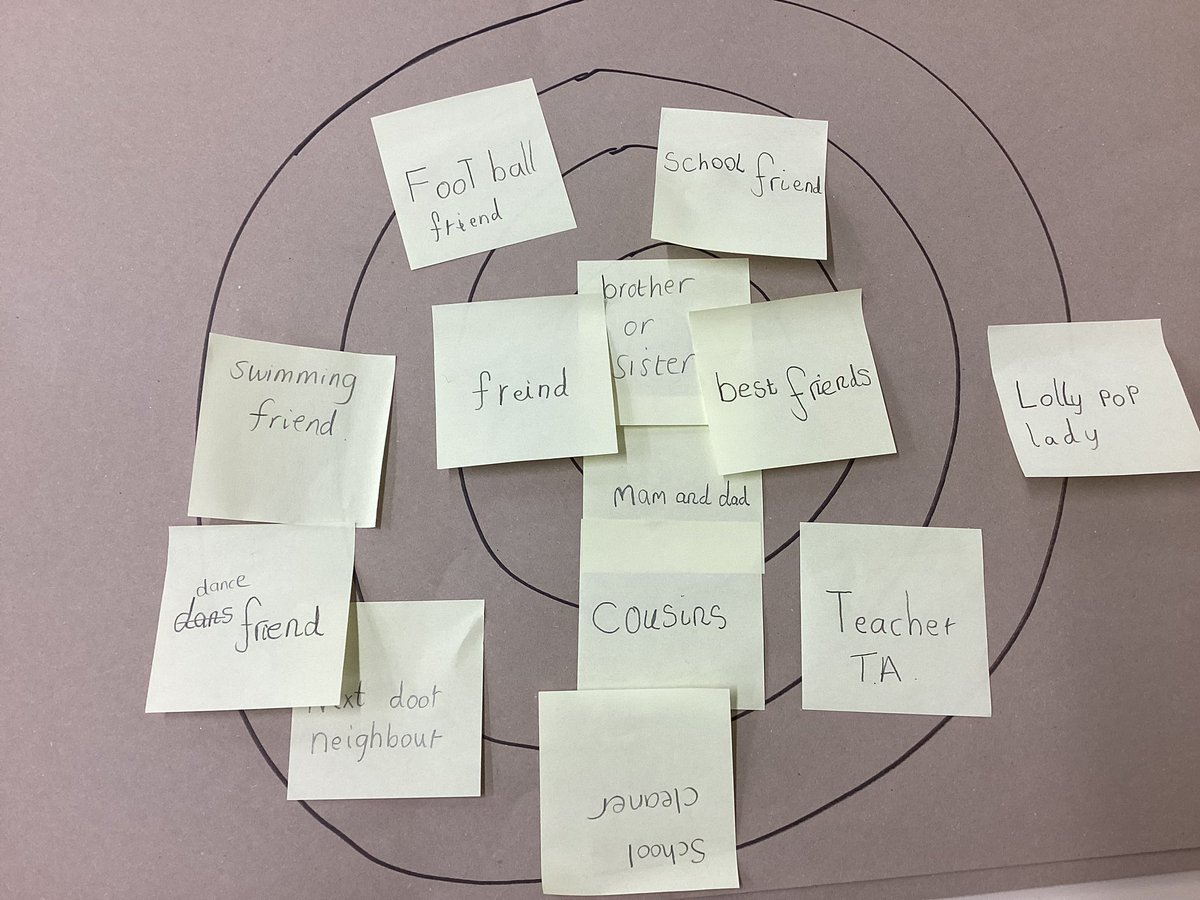 FooT ball
friend
School friend
brother
or
Sister
freind
best friends
Swimming
friend.
Lolly pop
lady
Mam and dad
dance
dans friend
Cousins
Teacher
T.A.
next door
neighbour
School
cleaner